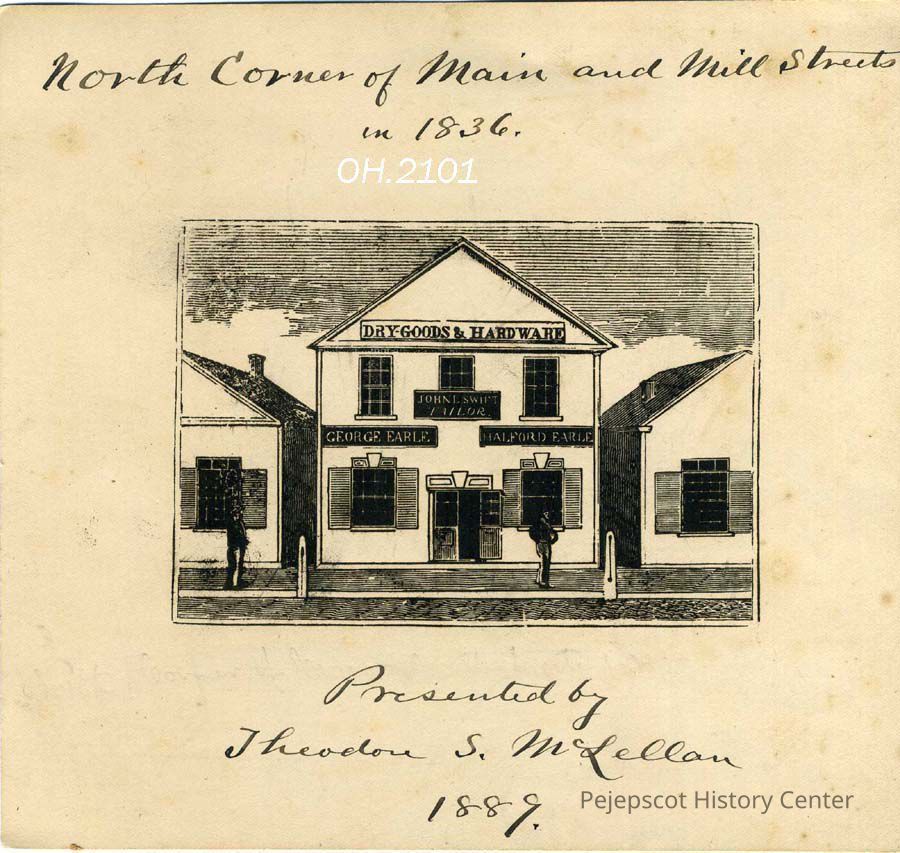 North Corner of Main and Mill Streets
in 1836.
OH.2101
DRY-GOODS & HARDWARE
JOHN L. SWIFT
TAILOR.
GEORGE EARLE.
HALFORD EARLE
Presented by
Theodore S. McLellan
1889.
Pejepscot History Center